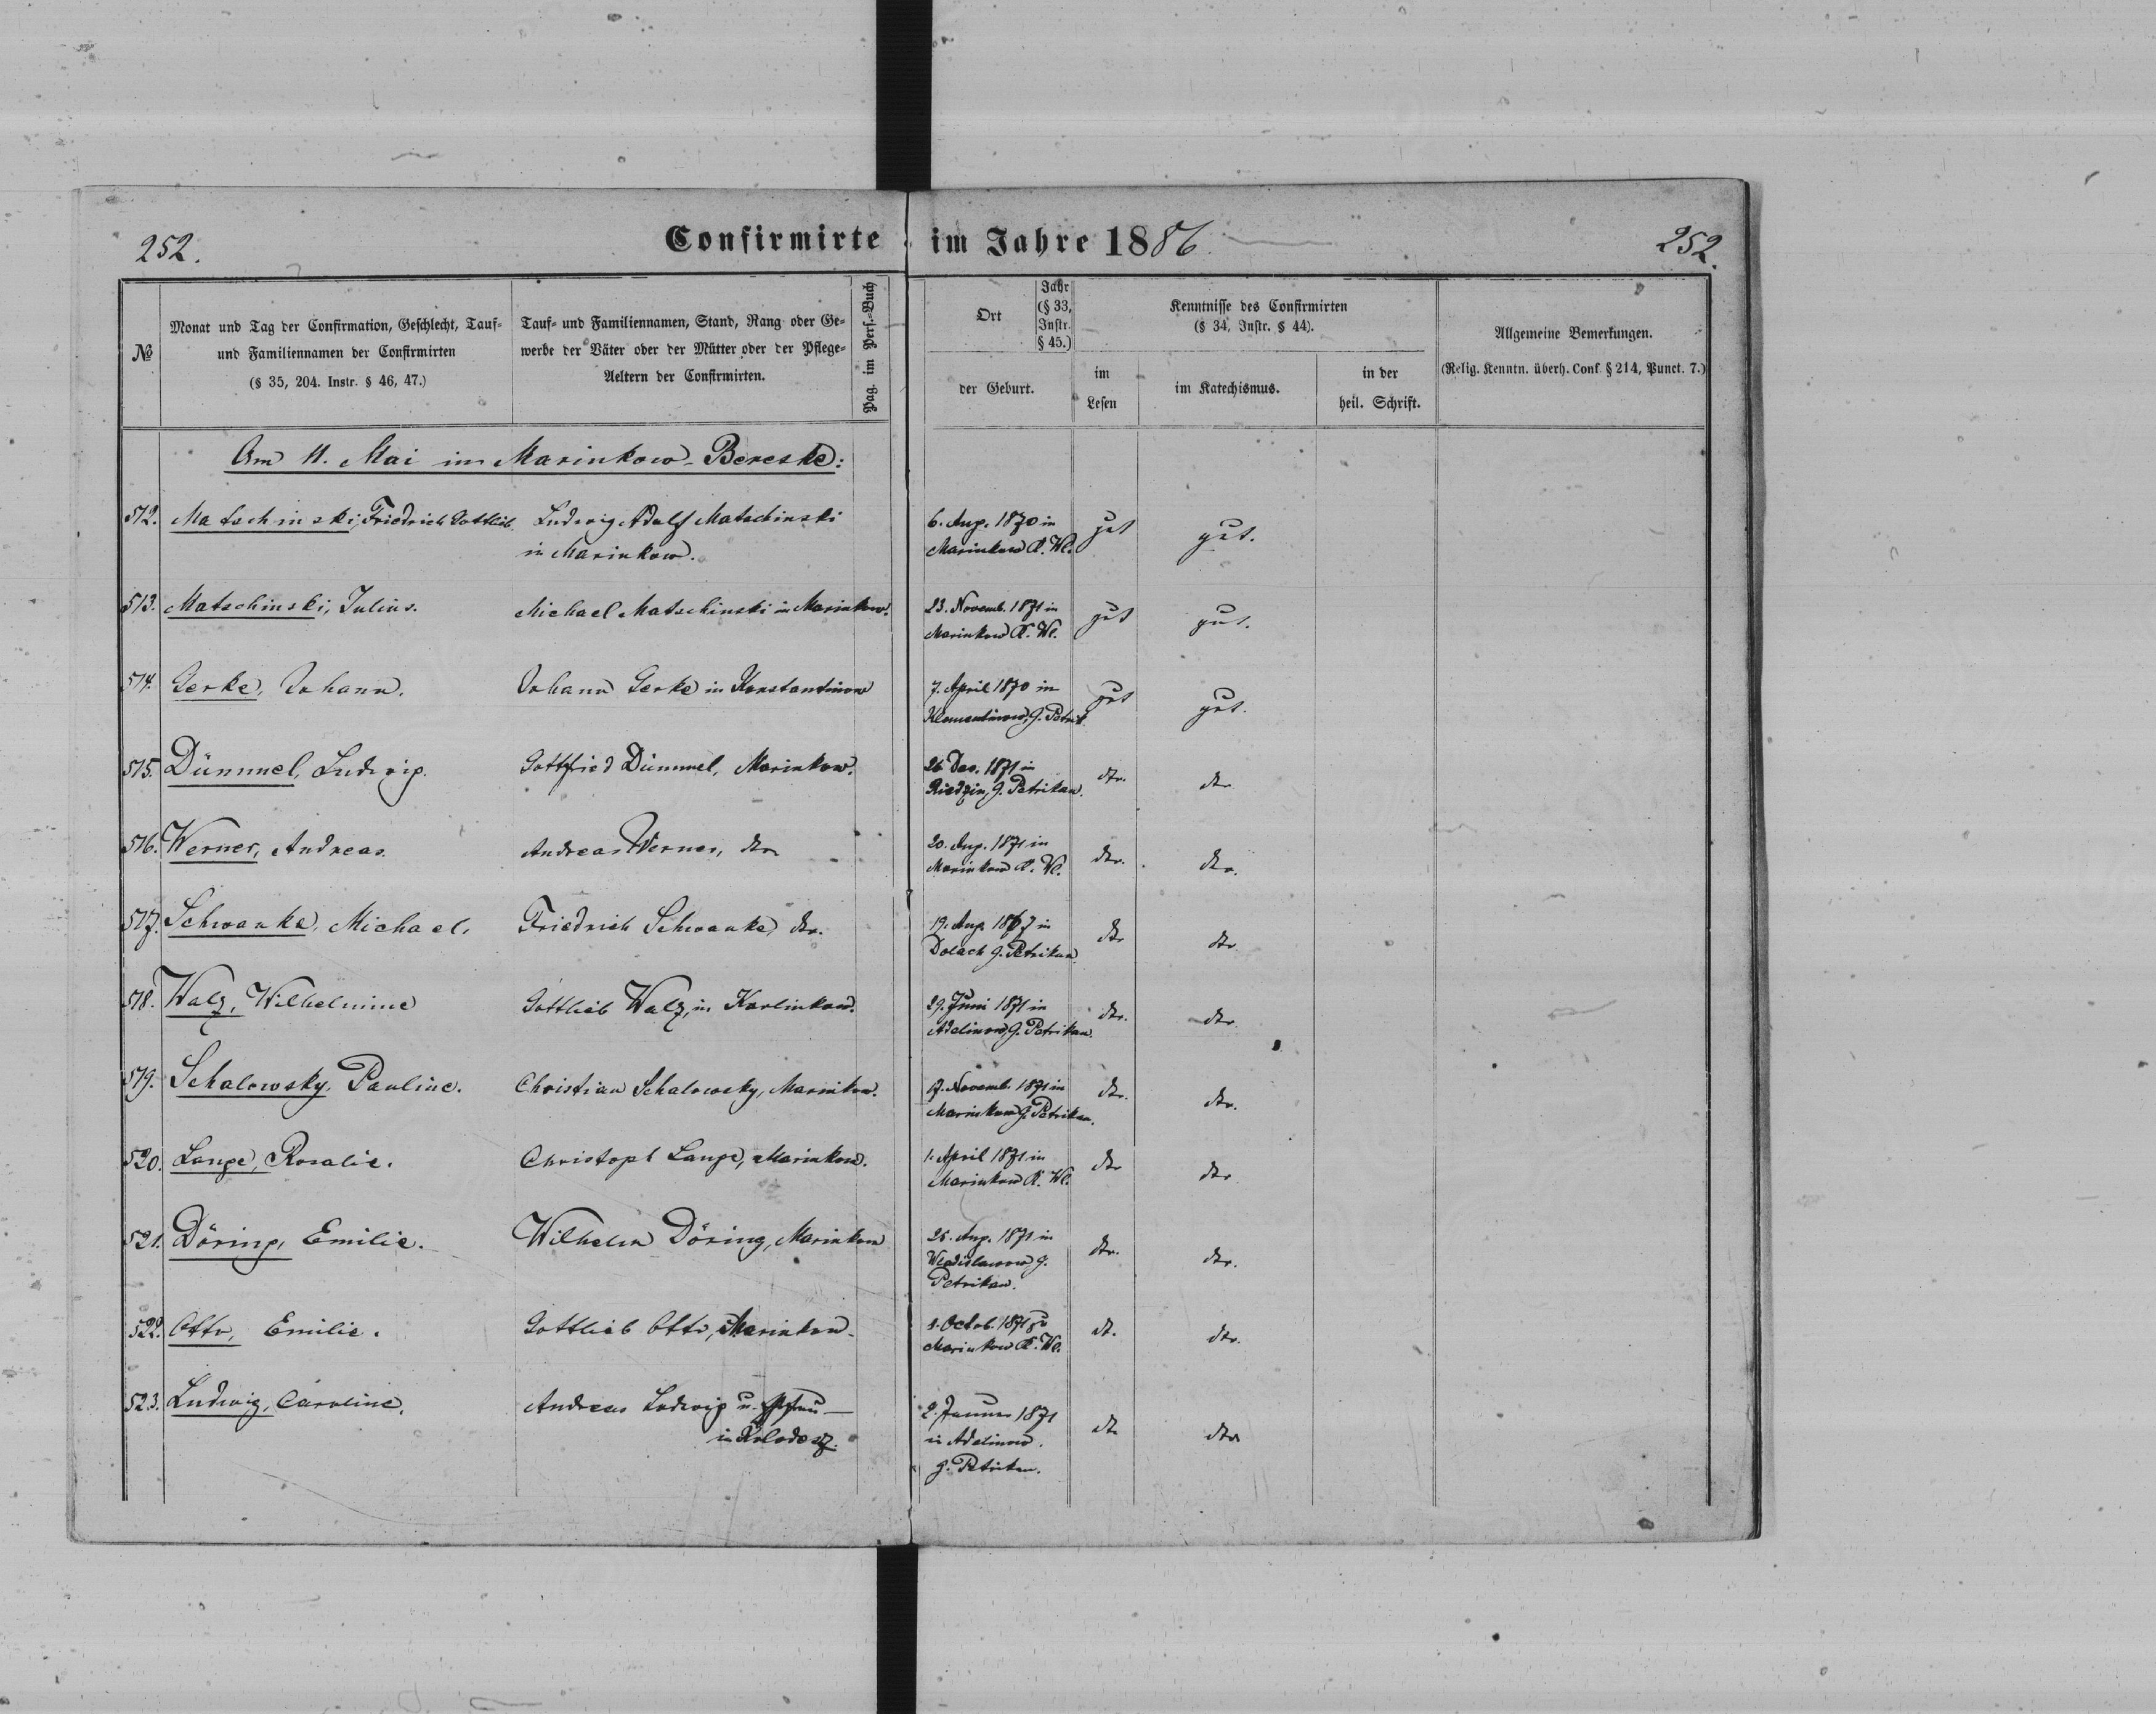 252.
Confirmirte im Jahre 1886
252.
№
Monat und Tag der Confirmation, Geschlecht, Tauf-
und Familiennamen der Confirmirten
(§ 35, 204. Instr. § 46, 47.)
Tauf- und Familiennamen, Stand, Rang oder Ge-
werbe der Väter oder der Mütter oder der Pflege-
Aeltern der Confirmirten.
Pag. im Pers.-Buch
Ort
Jahr
(§ 33,
Instr.
§ 45.)
der Geburt.
Kenntnisse des Confirmirten
(§ 34, Instr. § 44).
im
Lesen
im Katechismus.
in der
heil. Schrift.
Allgemeine Bemerkungen.
(Relig. Kenntn. überh. Conf. § 214, Punct. 7.)
Am 11. Mai im Marinkow-Bereske:
512. Matschinski, Friedrich Gottlieb Ludwig Adolf Matschinski
in Marinkow.
6. Aug. 1870 in
Marinkow K. Wl. gut gut.
513. Matschinski, Julius. Michael Matschinski in Marinkow.
23. Novemb. 1871 in
Marinkow K. Wl. gut gut.
514. Gerke, Johann. Johann Gerke in Konstantinow
7. April 1870 in
Klementinow, G. Petrik gut gut.
515. Dümmel, Ludwig. Gottfried Dümmel, Marinkow.
26 Dec. 1871 in
G. Petrikau. dto. dto
516. Werner, Andreas. Andreas Werner, dto
20. Aug. 1871 in
Marinkow K. Wl. dto. dto.
517. Schwanke, Michael. Friedrich Schwanke, dto.
19. Aug. 1867 in
Dolach G. Petrikau. dto dto
518. Walz, Wilhelmine Gottlieb Walz, in Karlinkow.
29. Juni 1871 in
Adelinow, G. Petrikau. dto. dto
519. Schalowsky, Pauline. Christian Schalowsky, Marinkow.
17. Novemb. 1871 in
Marinkow G. Petrikau. dto. dto.
520. Lange, Rosalie. Christoph Lange, Marinkow.
1. April 1871 in
Marinkow K. Wl. dto dto
521. Döring, Emilie. Wilhelm Döring, Marinkow
25. Aug. 1871 in
Wladislawow G.
Petrikau. dto. dto.
522. Otto, Emilie. Gottlieb Otto, Marinkow.
1. Octob. 1871 zu
Marinkow K. Wl. dt. dto.
523. Ludwig, Caroline. Andreas Ludwig u.
in Kolodesz.
2. Januar 1871
in Adelinow.
G. Petrikau. dto dto